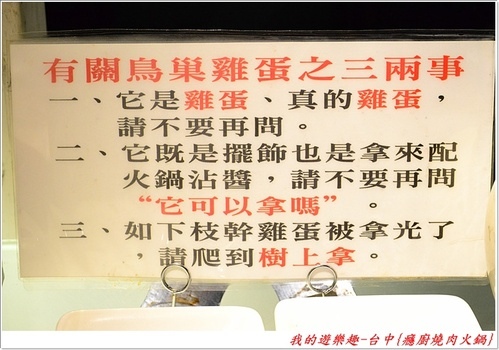 有關鳥巢雞蛋之三兩事
一、它是雞蛋、真的雞蛋，
請不要再問。
二、它既是擺飾也是拿來配
火鍋沾醬，請不要再問
“它可以拿嗎”。
三、如下枝幹雞蛋被拿光了
，請爬到樹上拿。
我的遊樂趣-台中{癮廚燒肉火鍋}